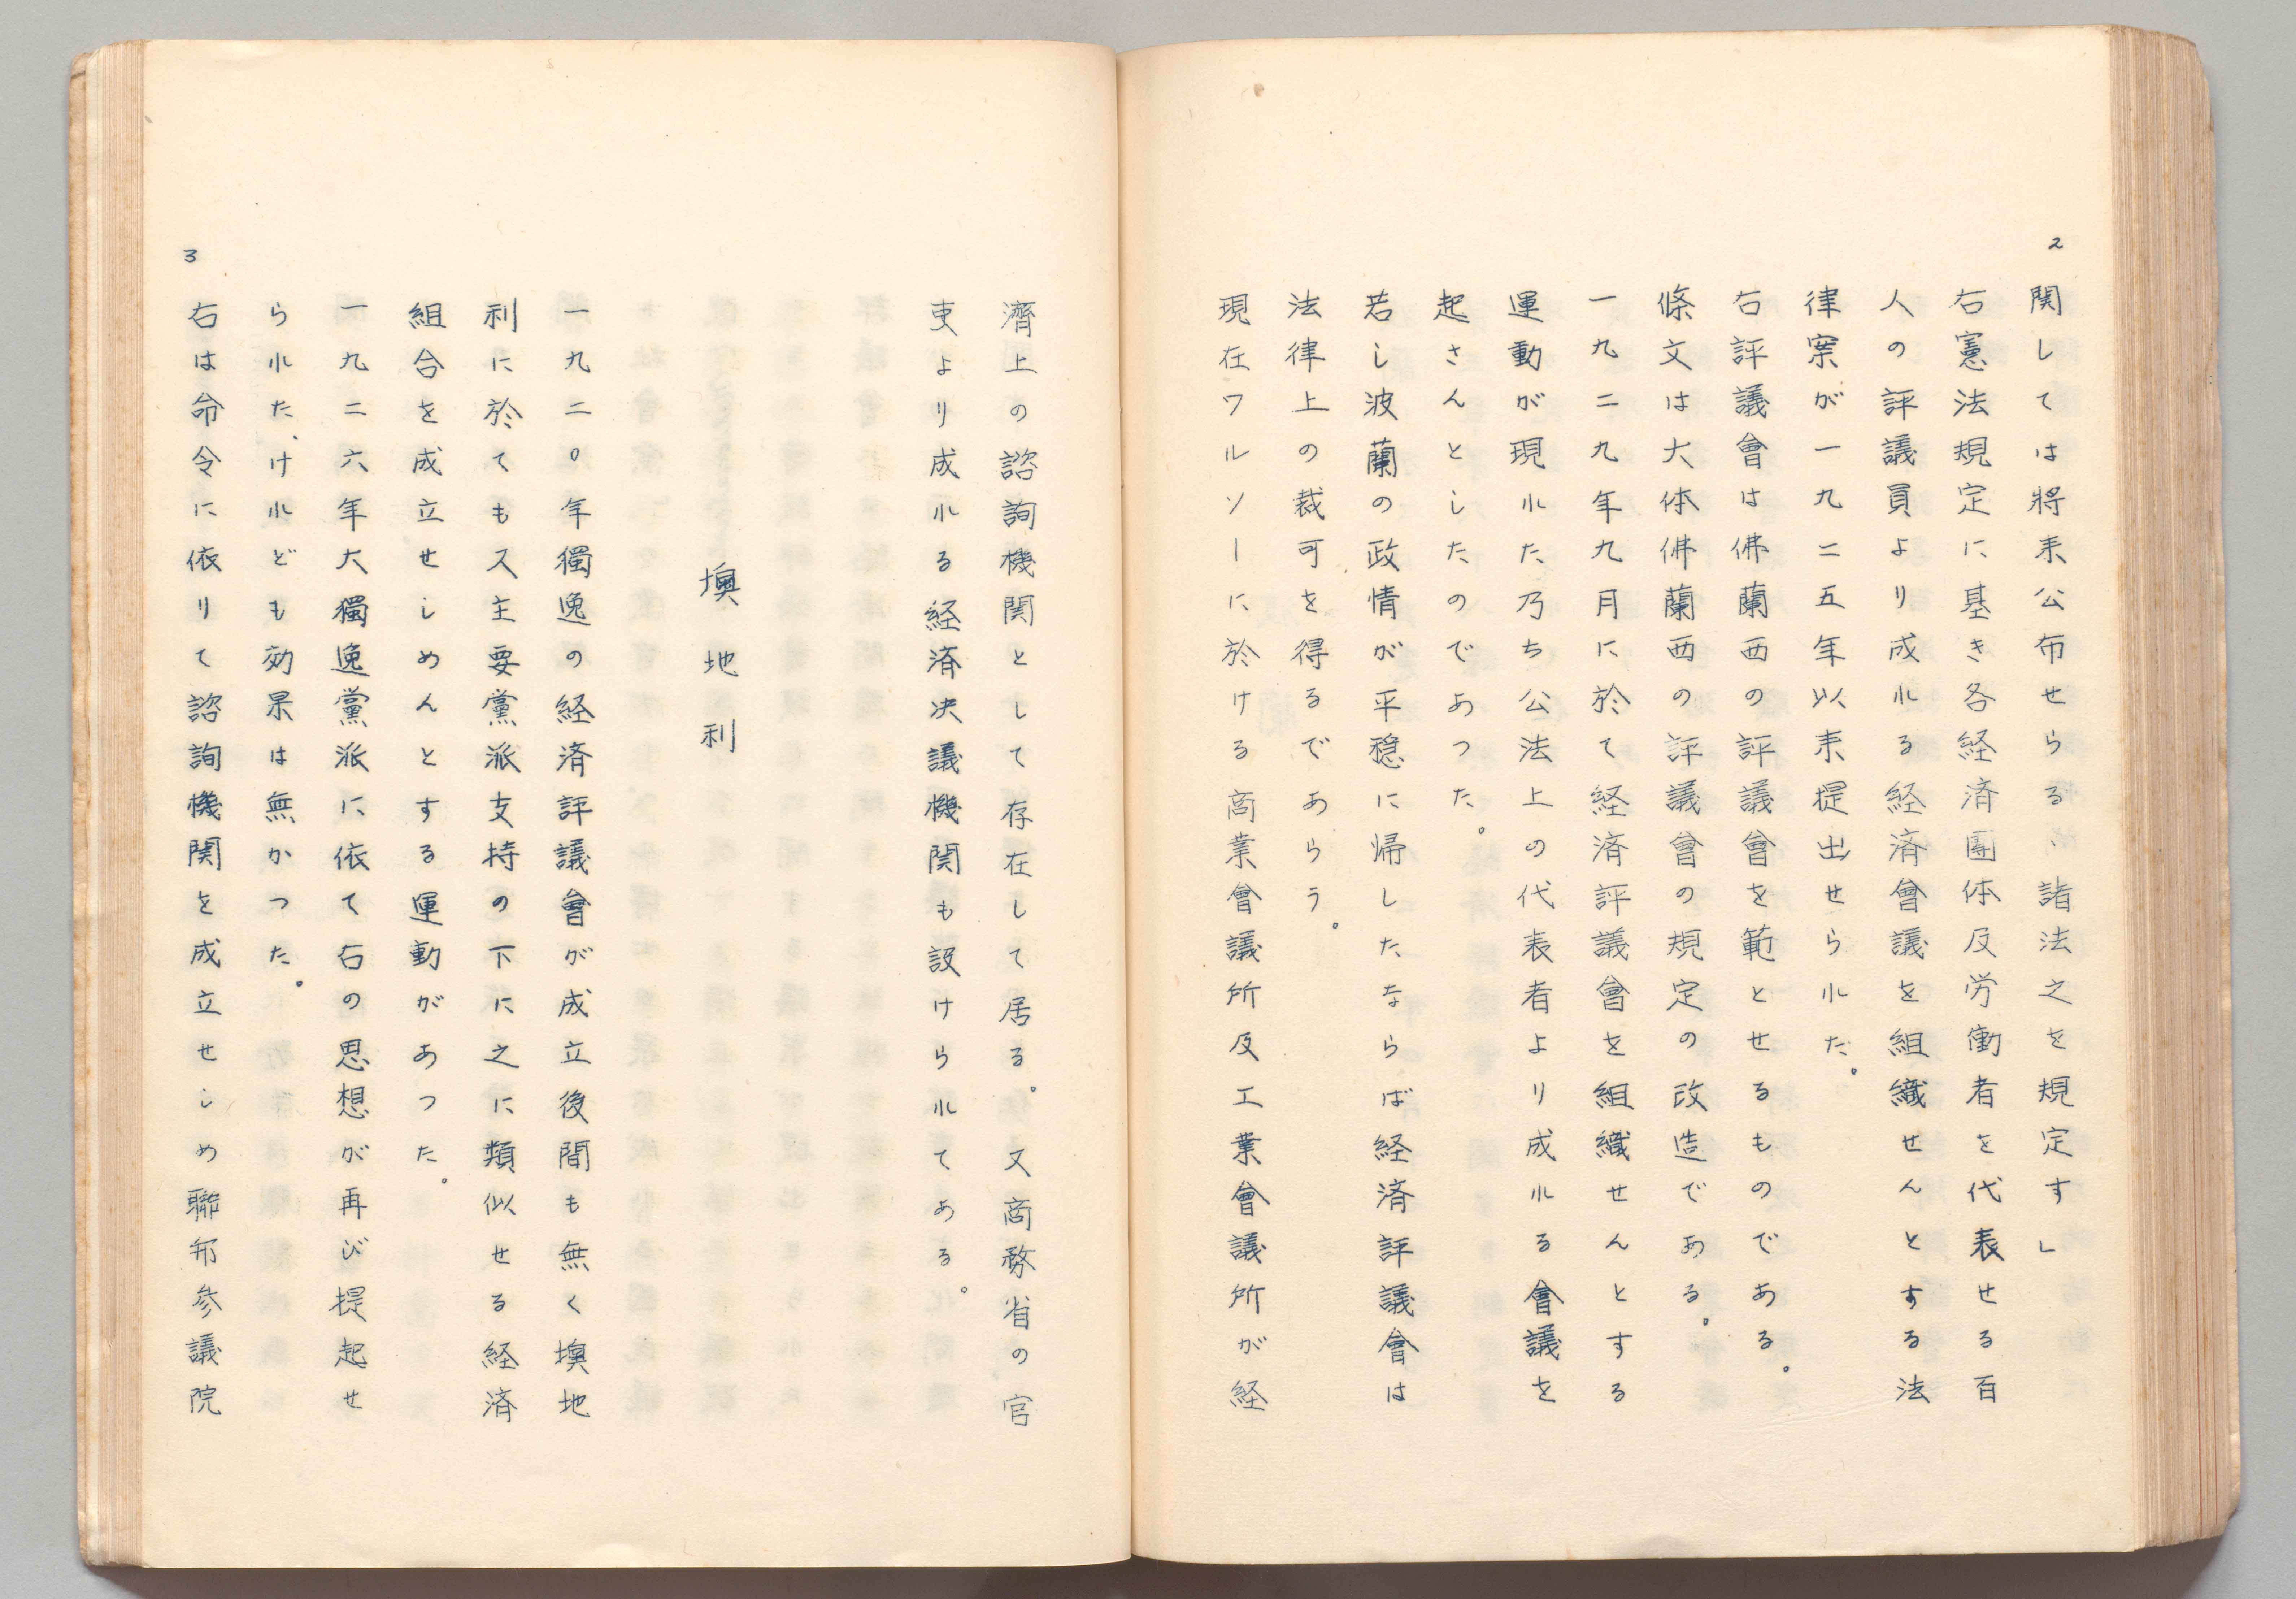 2
関しては將来公布せらる、諸法之を規定す」
右憲法規定に基き各経済團体及労働者を代表せる百
人の評議員より成れる経済會議を組織せんとする法
律案が一九二五年以来提出せられた。
右評議會は佛蘭西の評議會を範とせるものである。
條文は大体佛蘭西の評議會の規定の改造である。
一九二九年九月に於て経済評議會を組織せんとする
運動が現れた乃ち公法上の代表者より成れる會議を
起さんとしたのであつた。
若し波蘭の政情が平穏に帰したならば経済評議會は
法律上の裁可を得るであらう。
現在ワルソーに於ける商業會議所及工業會議所が経
濟上の諮詢機関として存在して居る。又商務省の官
吏より成れる経済决議機関も設けられてある。
墺地利
一九二〇年獨逸の経済評議會が成立後間も無く墺地
利に於ても又主要黨派支持の下に之に類似せる経済
組合を成立せしめんとする運動があつた。
一九二六年大獨逸黨派に依て右の思想が再び提起せ
られた、けれども効果は無かつた。
右は命令に依りて諮詢機関を成立せしめ聯邦参議院
3